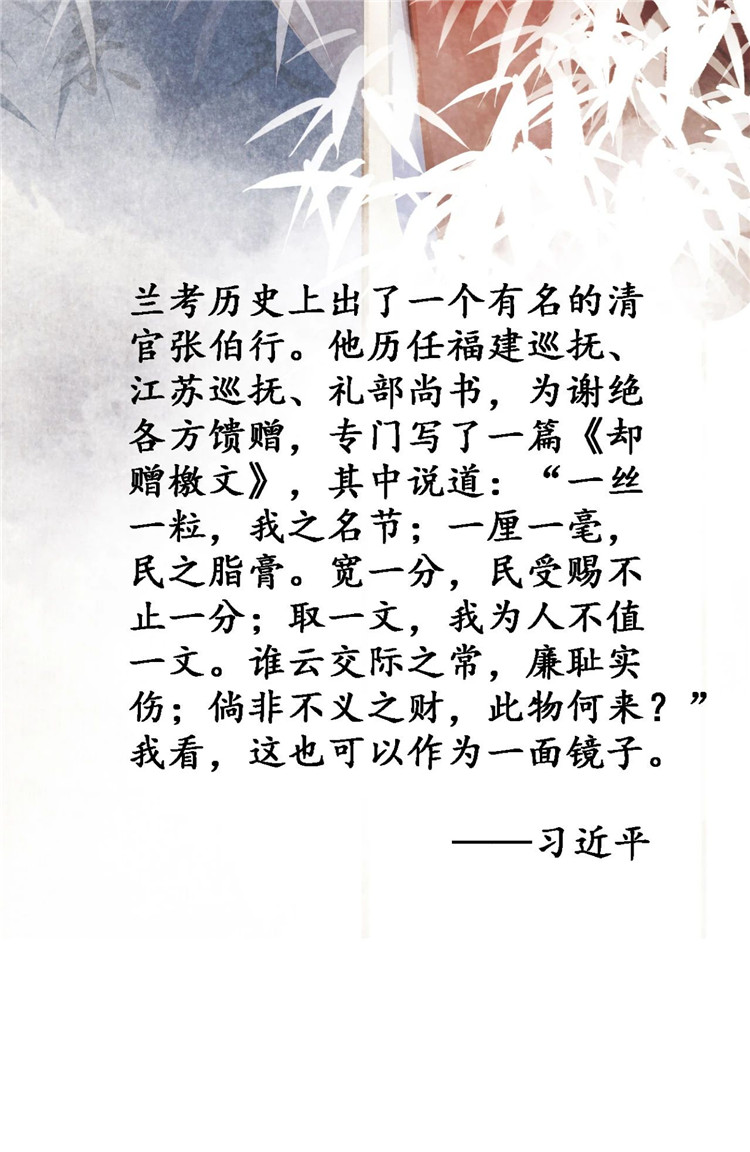 兰考历史上出了一个有名的清
官张伯行。他历任福建巡抚、
江苏巡抚、礼部尚书，为谢绝
各方馈赠，专门写了一篇《却
赠檄文》，其中说道：“一丝
一粒，我之名节；一厘一毫，
民之脂膏。宽一分，民受赐不
止一分；取一文，我为人不值
一文。谁云交际之常，廉耻实
伤；倘非不义之财，此物何来？”
我看，这也可以作为一面镜子。
——习近平